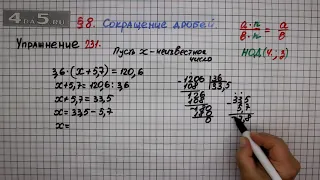 4 на 5 .ru
§8. Сокращение дробей
Упражнение 237.
a·n / b·n = a / b
НОД(4,3)
Пусть x - неизвестное
число
3,6·(x+5,7)=120,6
x+5,7=120,6:3,6
x+5,7=33,5
x=33,5-5,7
x=
1206 |36
108 33,5
126
108
180
180
0
-33,5
5,7
7,8